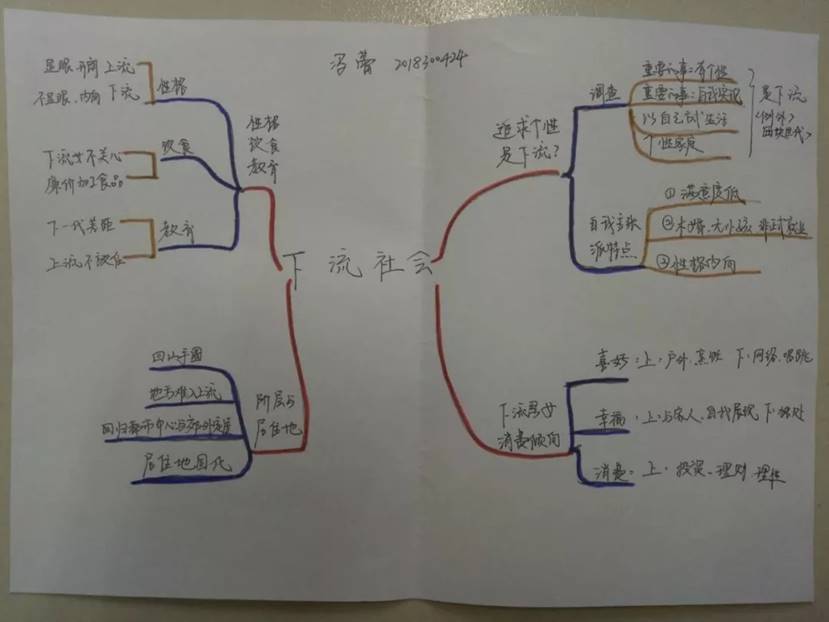 冯蕾 2018300424
下流社会
追求个性
是下流?
调查
重要的事:有个性
重要的事:自我实现
以自己方式生活
个性家庭
是下流
<例外>
团块世代
自我主张
派特点
①满意度低
②未婚、无小孩、非正式就业
③性格内向
下流男女
消费倾向
喜好:上:户外.烹饪 下:网络.唱跳
幸福:上:与家人.自我展现 下:独处
消费:上:投资、理财
性格
饮食
教育
性格
显眼.开朗 上流
不显眼.内向 下流
饮食
下流女不关心
廉价加工食品
教育
下一代差距
上流不读低
阶层与
居住地
回山手圈
地方难入上流
回归都市中心与郊外定居
居住地固化